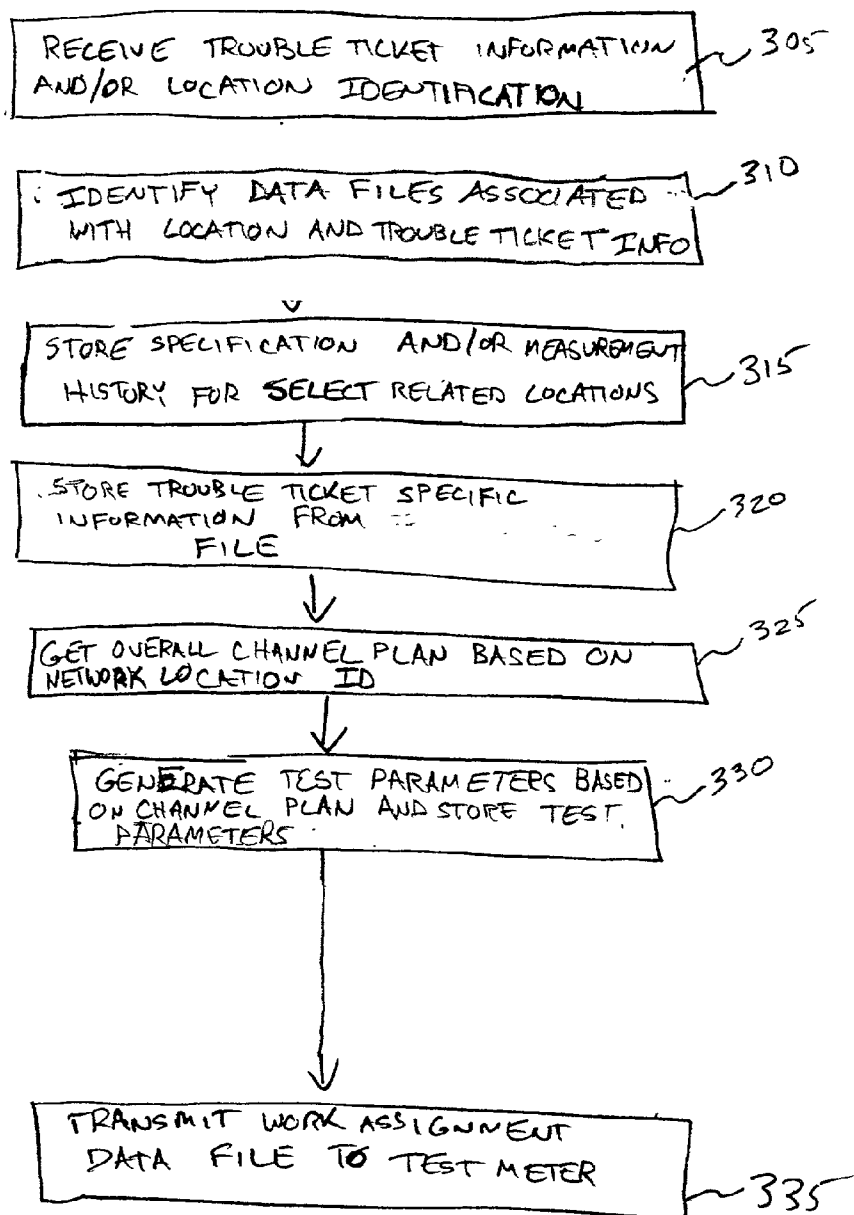 RECEIVE TROUBLE TICKET INFORMATION
AND/OR LOCATION IDENTIFICATION
305
IDENTIFY DATA FILES ASSOCIATED
WITH LOCATION AND TROUBLE TICKET INFO
310
STORE SPECIFICATION AND/OR MEASUREMENT
HISTORY FOR SELECT RELATED LOCATIONS
315
STORE TROUBLE TICKET SPECIFIC
INFORMATION FROM
FILE
320
GET OVERALL CHANNEL PLAN BASED ON
NETWORK LOCATION ID
325
GENERATE TEST PARAMETERS BASED
ON CHANNEL PLAN AND STORE TEST
PARAMETERS
330
TRANSMIT WORK ASSIGNMENT
DATA FILE TO TEST METER
335